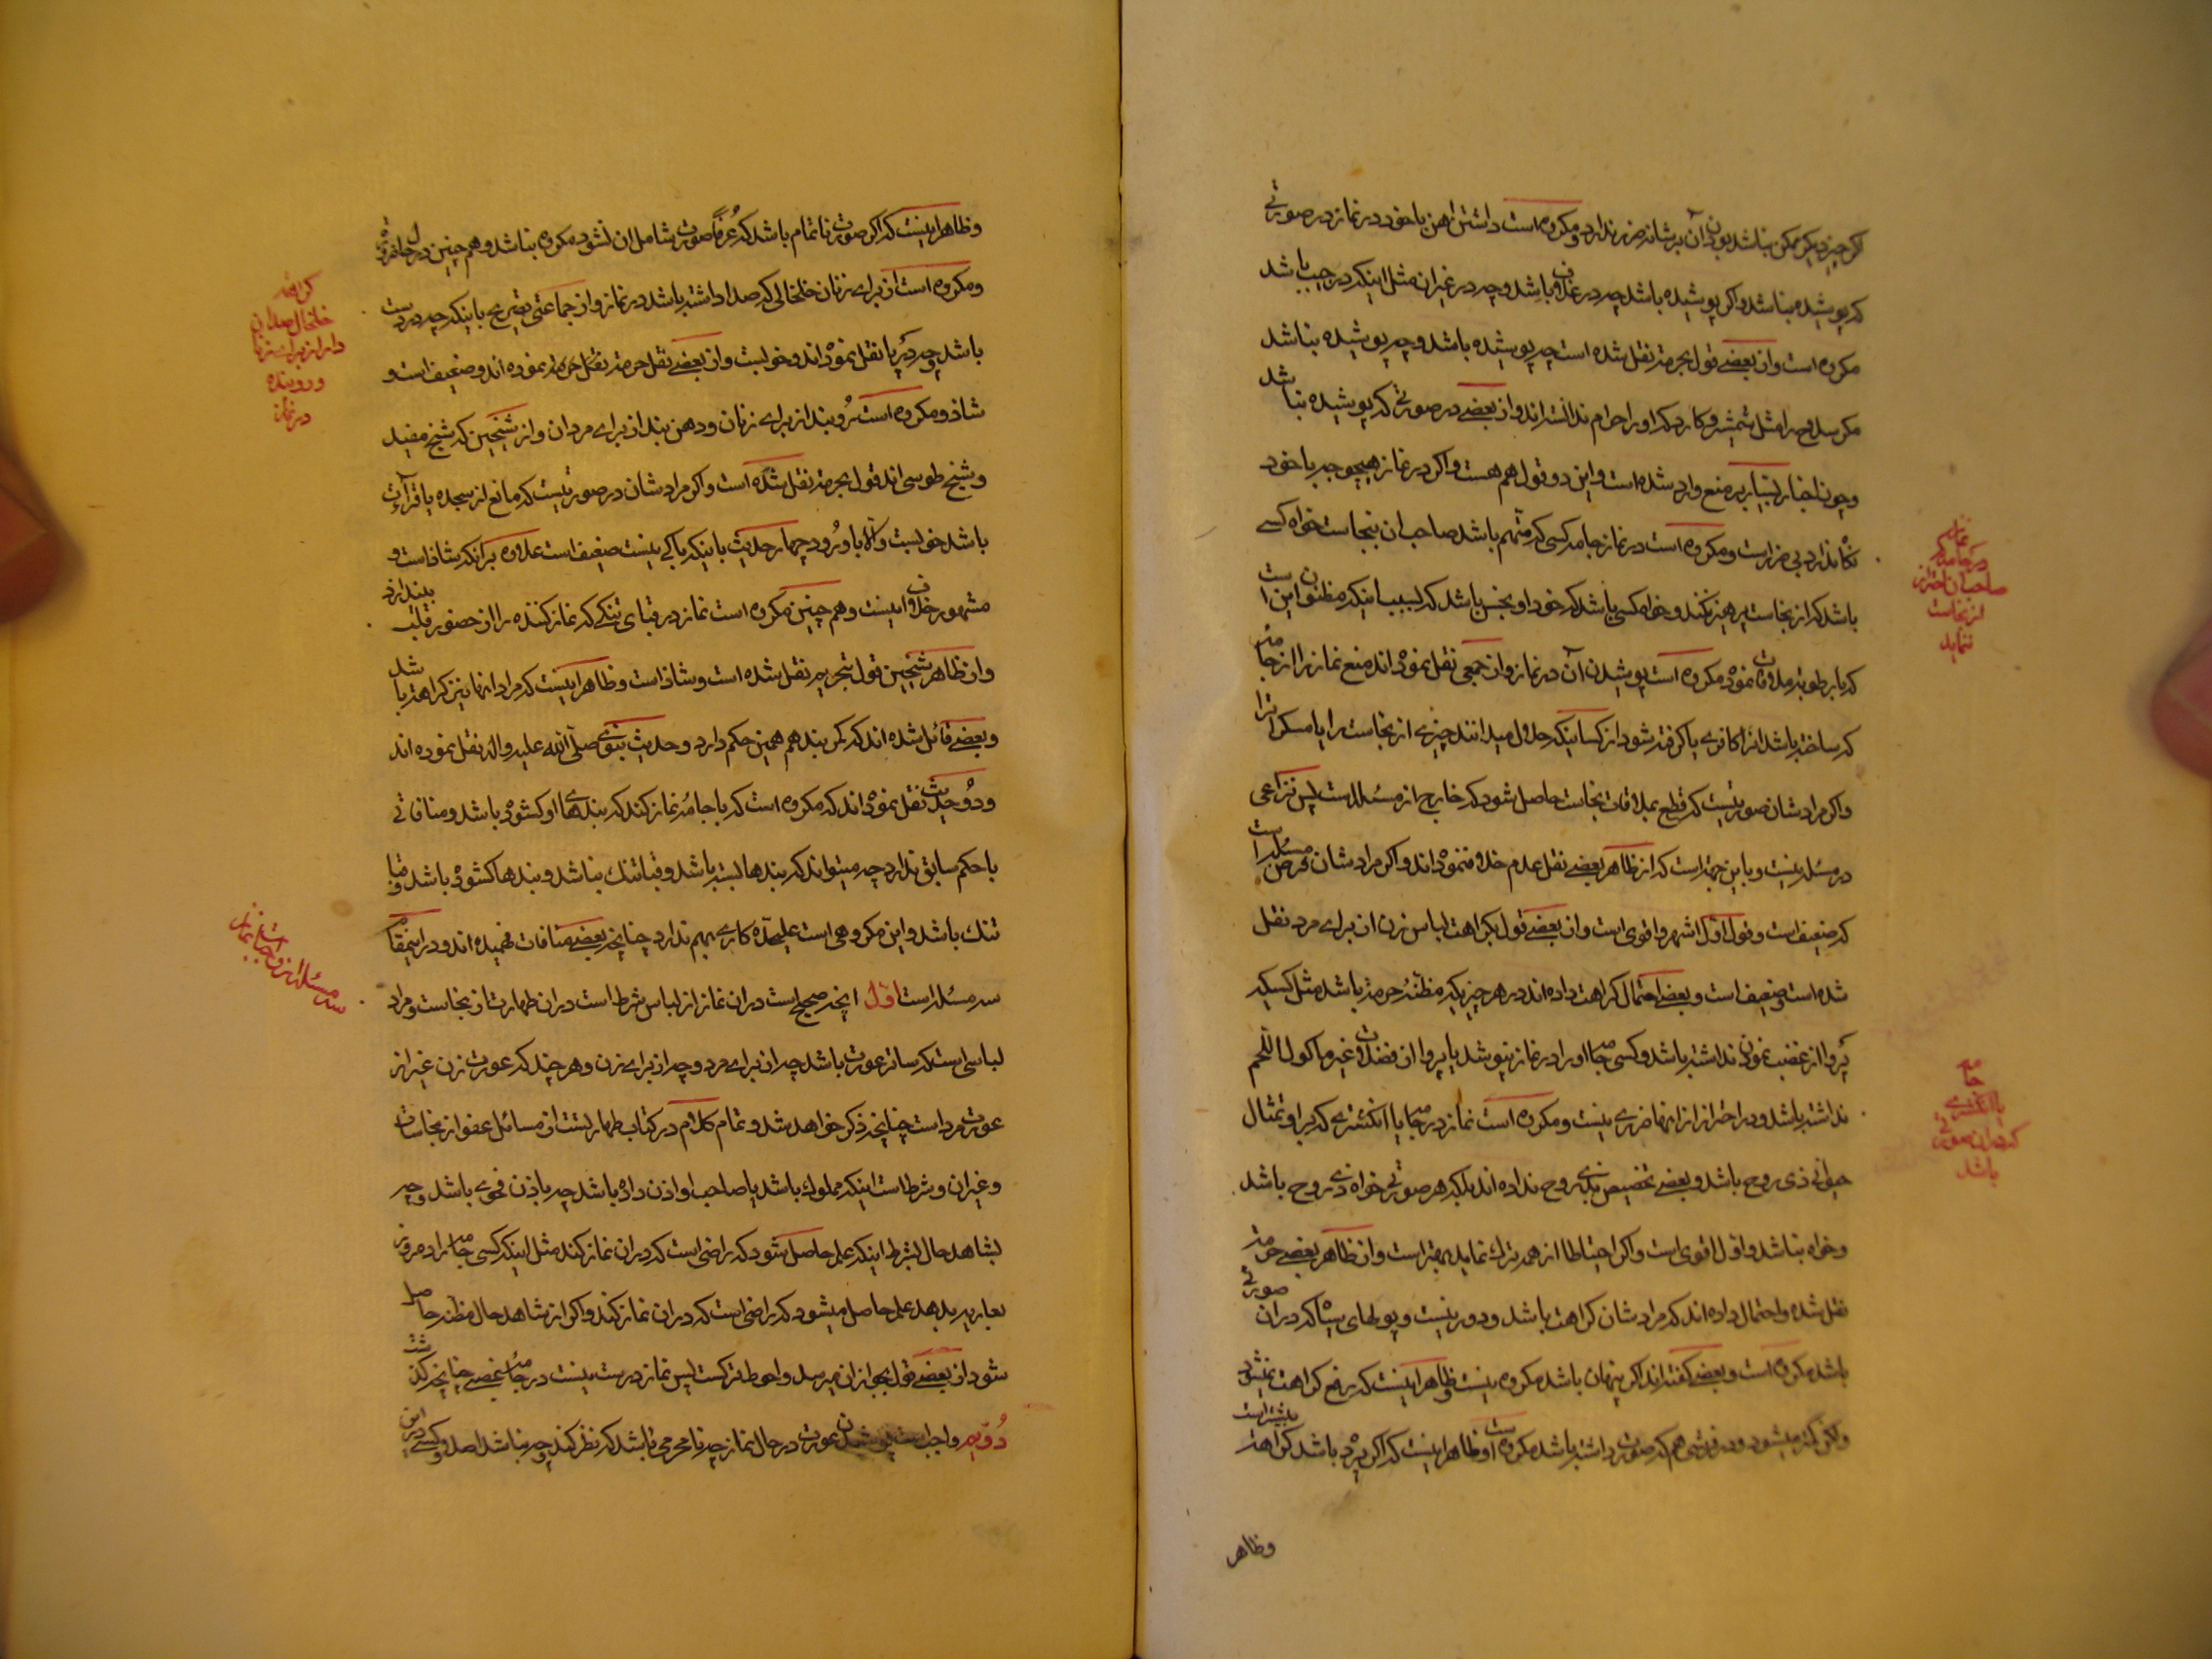 اگر چیز دیگر ممکن نباشد بودن آن بر شانه ضرر ندارد و مکروه است داشتن اهن با خود در نماز در صورتی
که پوشیده نباشد و اگر پوشیده باشد چه در غلاف باشد و چه در غیر ان مثل اینکه در جیب باشد
مکروه است و از بعضی قول بحرمة نقل شده است چه پوشیده باشد و چه پوشیده نباشد
مکر سلاح را مثل شمشیر و کارد که او را حرام ندانسته اند و از بعضی در صورتی که پوشیده نباشد
و چون اخبار بسیار بر منع وارد شده است و این دو قول هم هست و اگر در نماز بهیچوجه با خود
نگاه ندارد بی ضرر است و مکروه است در نماز جامه کسی که متهم باشد صاحب ان بنجاست خواه کسی
باشد که از نجاست پرهیز نکند و خواه کسی باشد که خود او نجس باشد که بسبب اینکه مظنون این است
که با رطوبة ملاقات نموده مکروه است پوشیدن آن در نماز و از جمعی نقل نموده اند منع نماز را از جامه
که ساخته باشد انرا کافری یا گرفته شود از کسانیکه حلال میدانند چیزی از نجاست را یا مسکر انرا
و اگر مراد شان صورتیست که قطع بملاقات نجاست حاصل شود که خارج از مسئله است پس نزاعی
در مسئله نیست و باین جهة است که از ظاهر بعضی نقل عدم خلاف نموده اند و اگر مراد شان فرض مسئله است
که ضعیف است و قول اول اشهر و اقوی است و از بعضی قول بکراهت لباس زن از برای مرد نقل
شده است و ضعیف است و بعضی احتمال کراهت داده اند در هر چیزیکه مظنه حرمة باشد مثل کسیکه
پروا از غضب نمودن نداشته باشد و کسی جامه او را در نماز بپوشد یا پروا از فضلات غیر ماکول اللحم
نداشته باشد و در احتراز از انها ضرری نیست و مکروه است نماز در جامه یا انگشتری که در او تمثال
حیوانی ذی روح باشد و بعضی تخصیص بذی روح نداده اند بلکه هر صورتی خواه ذی روح باشد
و خواه نباشد و اول اقوی است و اگر احتیاطا از همه ترک نماید بهتر است و از ظاهر بعضی حرمة
نقل شده و احتمال داده اند که مراد شان کراهت باشد و دور نیست و پولهای سیاه که در ان صورتی
باشد مکروه است و بعضی گفته اند اگر پنهان باشد مکروه نیست و ظاهر اینست که رفع کراهت نمیشود
ولکن کمتر میشود و در فرشی هم که صورت داشته باشد مکروه است و ظاهر اینست که اگر پرده باشد کراهة بیشتر است
وظاهر
نماز
در جامه که
صاحب ان احتراز
از نجاست
ننماید
جامه
یا انگشتری
که در ان صورتی
باشد
و ظاهر اینست که اگر صورت ناتمام باشد که عرفا صورت شامل ان نشود مکروه نباشد و هم چنین در خلخال
و مکروه است از برای زنان خلخالی که صدا داشته باشد در نماز و از جماعتی تصریح باینکه چه در دست
باشد و چه در پا نقل نموده اند و خوبست و از بعضی نقل حرمة نقل حرمة نموده اند و ضعیف است و
شاذ و مکروه است رُوبند از برای زنان و دهن بند از برای مردان و از شیخین که شیخ مفید
و شیخ طوسی اند قول بحرمة نقل شده است و اگر مراد شان در صورتیست که مانع از سجده یا قرآءة
باشد خوبست و الا با ورُود چهار حدیث باینکه باکی نیست ضعیف است علاوه بر آنکه شاذ است و
مشهور خلاف اینست و هم چنین مکروه است نماز در قبای تنگی که نماز کننده را از حضور قلب بیندازد
و از ظاهر شیخین قول بتحریم نقل شده است و شاذ است و ظاهر اینست که مراد انها نیز کراهة باشد
و بعضی قائل شده اند که کمربند هم همین حکم دارد و حدیث نبوی صلی الله علیه واله نقل نموده اند
و دُو حدیث نقل نموده اند که مکروه است که با جامه نماز کند که بندهای او کشوده باشد و منافاتی
با حکم سابق ندارد چه میتواند که بندها بسته باشد و قبا تنک نباشد و بندها کشوده باشد و قبا
تنک باشد و این مکروهی است علیحده کاری بهم ندارد چنانچه بعضی منافات فهمیده اند و در اینمقام
سه مسئله است اول انچه صحیح است در ان نماز از لباس شرط است در ان طهارت از نجاست و مراد
لباسی است که ساتر عورت باشد چه از برای مرد و چه از برای زن و هر چند که عورت زن غیر از
عورت مرد است چنانچه ذکر خواهد شد و تمام کلام در کتاب طهارتست از مسائل عفو از نجاسات
و غیر ان و شرط است اینکه مملوک باشد یا صاحب او اذن داده باشد چه باذن فحوی باشد و چه
بشاهد حال بشرط اینکه علم حاصل شود که راضی است که در ان نماز کند مثل اینکه کسی جامه را در روز
بعاریه بدهد علم حاصل میشود که راضی است که در ان نماز کند و اگر از شاهد حال مظنه حاصل
شود از بعضی قول بجواز ان میرسد و احوط ترکست پس نماز درست نیست در جامه غصبی چنانچه گذشت
دُوّیم واجب است پوشیدن عورت در حال نماز چه نامحرمی باشد که نظر کند و چه نباشد اصلا کسی در این
کراهة
خلخال صدا
دار از برای زنها
و روبنده
در نماز
سه مسئله